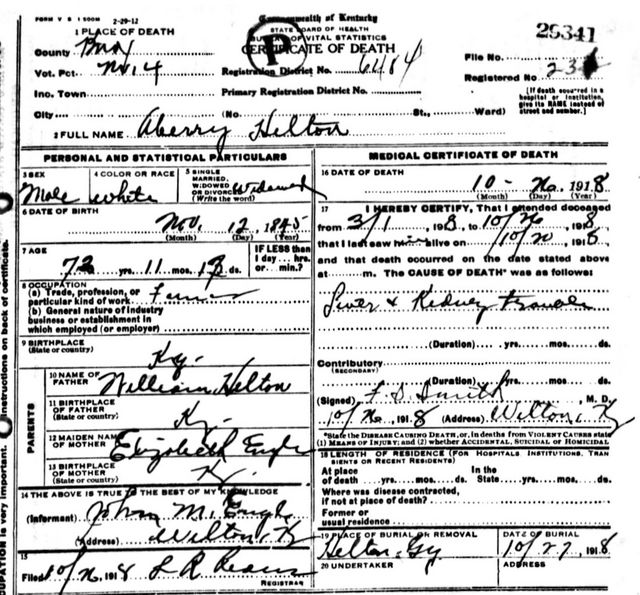 FORM V S 1 500M 2-29-12
Commonwealth of Kentucky
STATE BOARD OF HEALTH
BUREAU OF VITAL STATISTICS
CERTIFICATE OF DEATH
P
1 PLACE OF DEATH
County
Vot. Pct. No. 4
Inc. Town
City
Registration District No. 6484
Primary Registration District No.
(No. St., Ward)
File No. 29341
Registered No.
[If death occurred in a hospital or institution, give its NAME instead of street and number.]
2 FULL NAME Aberry Helton
PERSONAL AND STATISTICAL PARTICULARS
3 SEX Male
4 COLOR OR RACE White
5 SINGLE MARRIED, WIDOWED OR DIVORCED (Write the word) Widowed
6 DATE OF BIRTH
Nov. 12, 1845
(Month) (Day) (Year)
7 AGE
72 yrs. 11 mos. ds.
IF LESS than 1 day... hrs. or... min.?
8 OCCUPATION
(a) Trade, profession, or particular kind of work
(b) General nature of industry business or establishment in which employed (or employer)
9 BIRTHPLACE
(State or country) Ky.
PARENTS
10 NAME OF FATHER William Helton
11 BIRTHPLACE OF FATHER (State or country) Ky.
12 MAIDEN NAME OF MOTHER Elizabeth
13 BIRTHPLACE OF MOTHER (State or country) Ky.
14 THE ABOVE IS TRUE TO THE BEST OF MY KNOWLEDGE
(Informant) John M.
(Address) Wilton, Ky
15
Filed 10/26, 1918 L R
REGISTRAR
MEDICAL CERTIFICATE OF DEATH
16 DATE OF DEATH
10 - 26, 1918
(Month) (Day) (Year)
17 I HEREBY CERTIFY, That I attended deceased
from 3/1, 1918, to 10/20, 1918
that I last saw him alive on 10/20 1918
and that death occurred on the date stated above
at m. The CAUSE OF DEATH* was as follows:
Liver & Kidney trouble
(Duration) yrs. mos. ds.
Contributory
(SECONDARY)
(Duration) yrs. mos. ds.
(Signed) F. S. Smith, M. D.
10/26, 1918 (Address) Wilton, Ky
*State the DISEASE CAUSING DEATH, or, in deaths from VIOLENT CAUSES state (1) MEANS OF INJURY; and (2) whether ACCIDENTAL, SUICIDAL or HOMICIDAL
18 LENGTH OF RESIDENCE (FOR HOSPITALS INSTITUTIONS, TRANSIENTS OR RECENT RESIDENTS)
At place of death yrs. mos. ds. In the State yrs. mos. ds.
Where was disease contracted, if not at place of death?
Former or usual residence
19 PLACE OF BURIAL OR REMOVAL
Helton Gy
DATE OF BURIAL
10/27, 1918
20 UNDERTAKER
ADDRESS
instructions on back of certificate.
UPATION is very important.